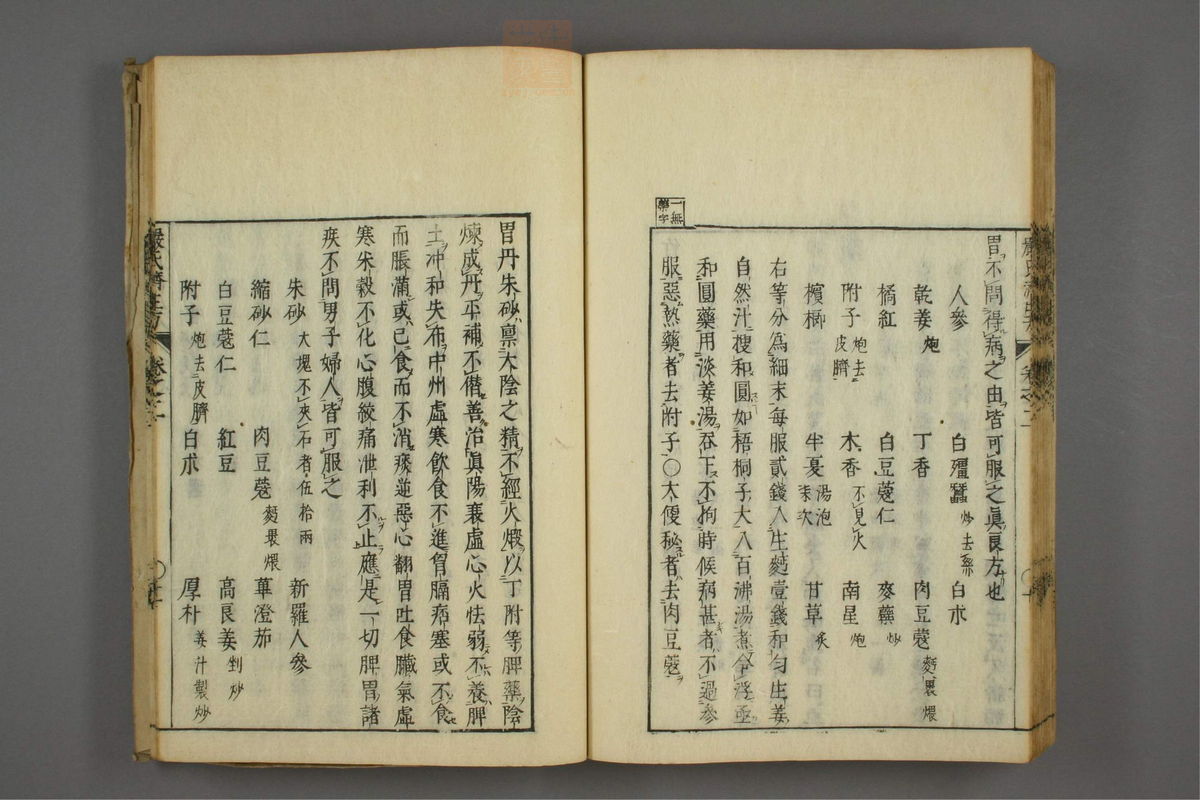 嚴氏濟生方 卷之二
一無
藥字
胃不問得病之由皆可服之真良方也
人參 白殭蠶炒去絲 白朮
乾姜炮 丁香 肉豆蔻麪裹煨
橘紅 白豆蔻仁 麥蘖炒
附子炮去皮臍 木香不見火 南星炮
檳榔 半夏湯泡柒次 甘草炙
右等分為細末每服貳錢入生麪壹錢和勻生姜
自然汁搜和圓如梧桐子大入百沸湯煮令浮亟
和圓藥用淡姜湯吞下不拘時候病甚者不過參
服惡熱藥者去附子〇大便秘者去肉豆蔻
胃丹朱砂禀太陰之精不經火煆以丁附等脾藥陰
煉成丹平補不僭善治真陽衰虛心火怯弱不養脾
土冲和失布中州虛寒飲食不進胷膈痞塞或不食
而脹滿或已食而不消痰逆惡心翻胃吐食臟氣虛
寒米穀不化心腹絞痛泄利不止應是一切脾胃諸
疾不問男子婦人皆可服之
朱砂大塊不夾石者伍拾兩 新羅人參
縮砂仁 肉豆蔻麪裹煨 蓽澄茄
白豆蔻仁 紅豆 高良姜剉炒
附子炮去皮臍 白朮 厚朴姜汁製炒
嚴氏濟生方 卷之二